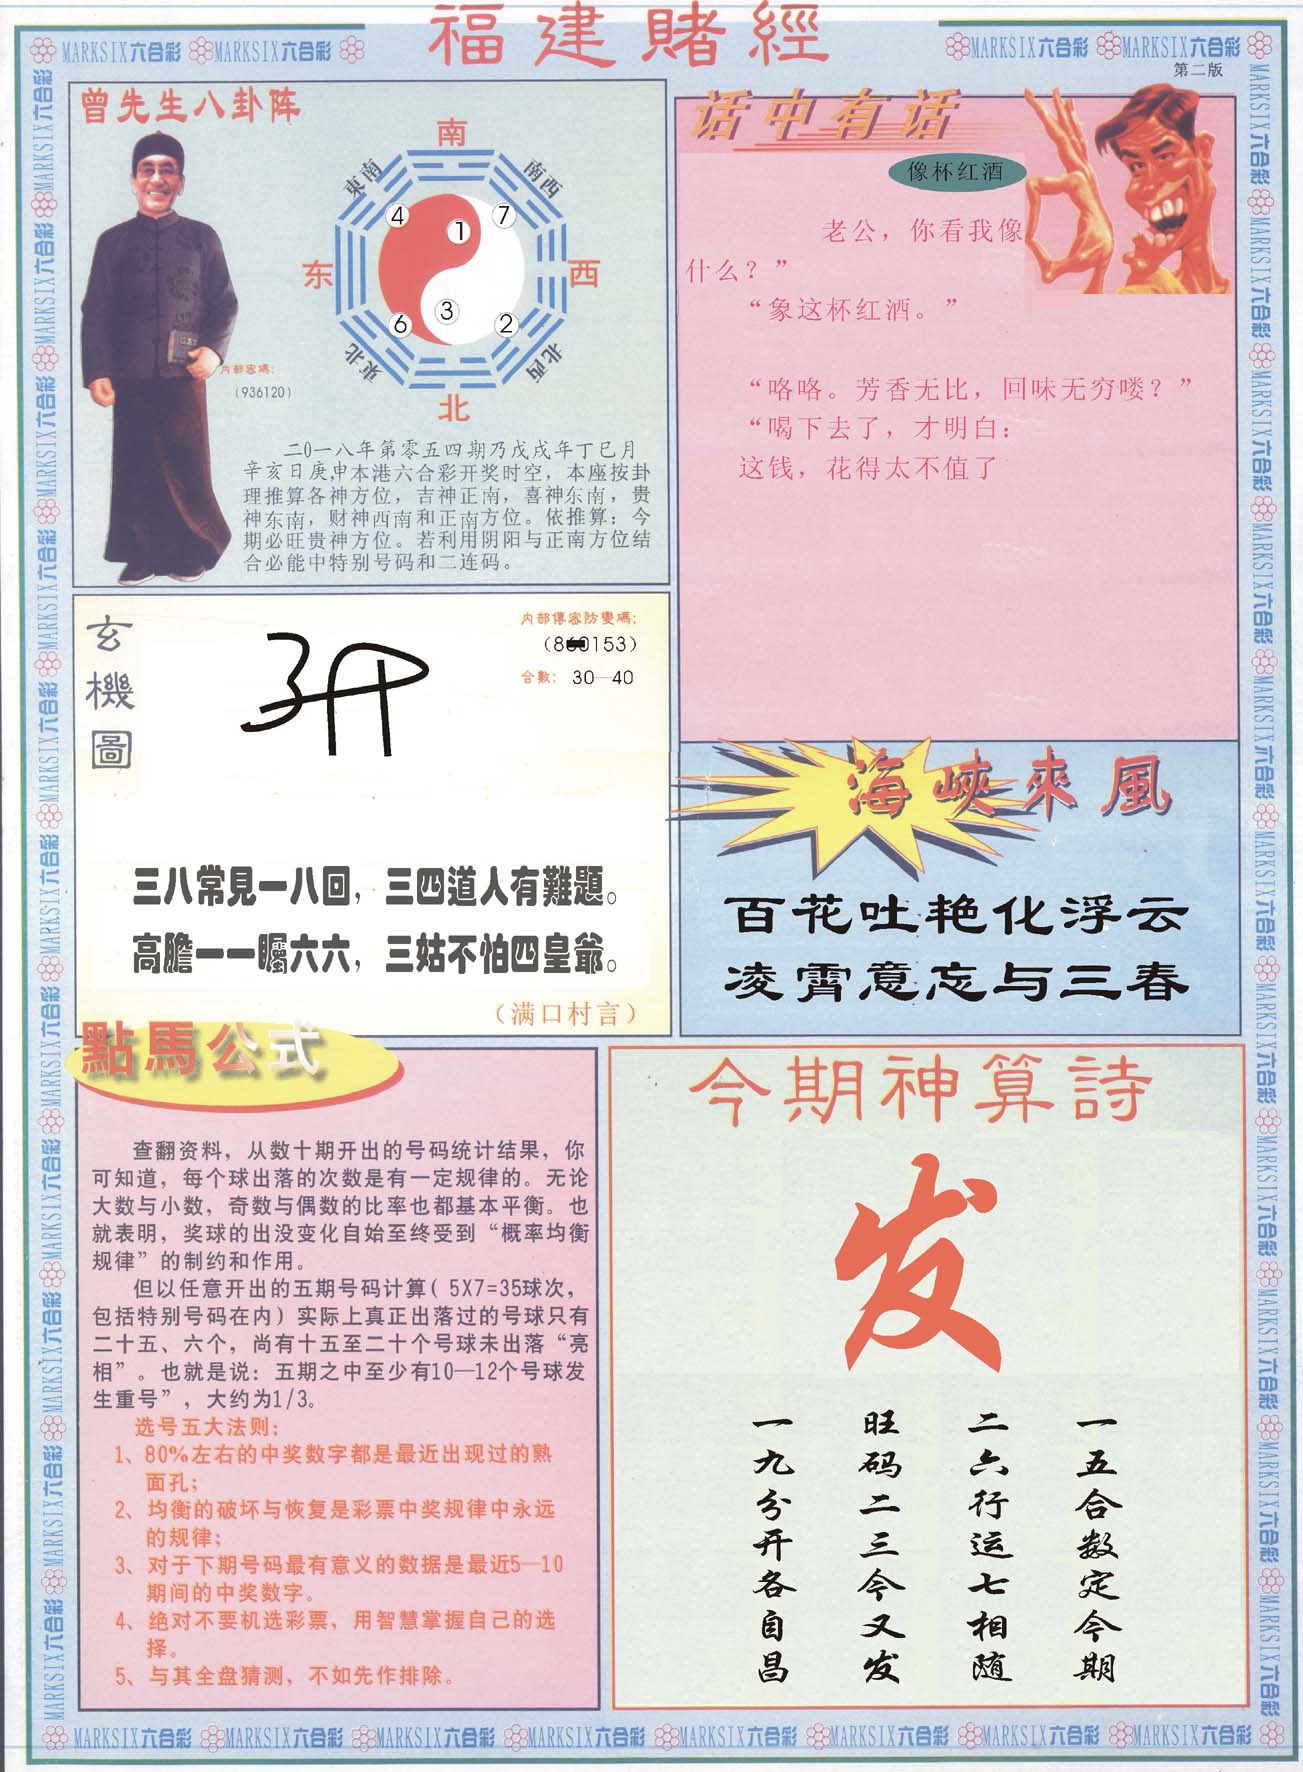 福建賭經
MARKSIX六合彩 MARKSIX六合彩
MARKSIX六合彩 MARKSIX六合彩
第二版
曾先生八卦阵
南
東南
南西
4
1
7
东
西
3
6
2
東北
北西
北
内部密碼：
（936120）
二0一八年第零五四期乃戊戌年丁巳月
辛亥日庚申本港六合彩开奖时空，本座按卦
理推算各神方位，吉神正南，喜神东南，贵
神东南，财神西南和正南方位。依推算：今
期必旺贵神方位。若利用阴阳与正南方位结
合必能中特别号码和二连码。
话中有话
像杯红酒
老公，你看我像
什么？”
“象这杯红酒。”
“咯咯。芳香无比，回味无穷喽？”
“喝下去了，才明白：
这钱，花得太不值了
玄機圖
内部傳密防變碼：
（860153）
合數： 30—40
三八常見一八回，三四道人有難題。
高膽一一矚六六，三姑不怕四皇爺。
（满口村言）
海峽來風
百花吐艳化浮云
凌霄意忘与三春
點馬公式
查翻资料，从数十期开出的号码统计结果，你
可知道，每个球出落的次数是有一定规律的。无论
大数与小数，奇数与偶数的比率也都基本平衡。也
就表明，奖球的出没变化自始至终受到“概率均衡
规律”的制约和作用。
但以任意开出的五期号码计算（ 5X7=35球次，
包括特别号码在内）实际上真正出落过的号球只有
二十五、六个，尚有十五至二十个号球未出落“亮
相”。也就是说：五期之中至少有10—12个号球发
生重号”，大约为1/3。
选号五大法则：
1、80%左右的中奖数字都是最近出现过的熟
面孔；
2、均衡的破坏与恢复是彩票中奖规律中永远
的规律；
3、对于下期号码最有意义的数据是最近5—10
期间的中奖数字。
4、绝对不要机选彩票，用智慧掌握自己的选
择。
5、与其全盘猜测，不如先作排除。
今期神算詩
发
一五合数定今期
二六行运七相随
旺码二三今又发
一九分开各自昌
MARKSIX六合彩 MARKSIX六合彩 MARKSIX六合彩 MARKSIX六合彩 MARKSIX六合彩 MARKSIX六合彩 MARKSIX六合彩 MARKSIX六合彩